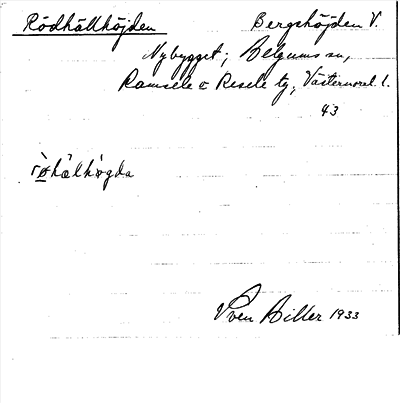 Rödhällhöjden Bergshöjden V.
Nybygget; Helgums sn,
Ramsele o Resele tg, Västernorrl. l.
43
rø̀hälhøgda
Sven Hiller 1933